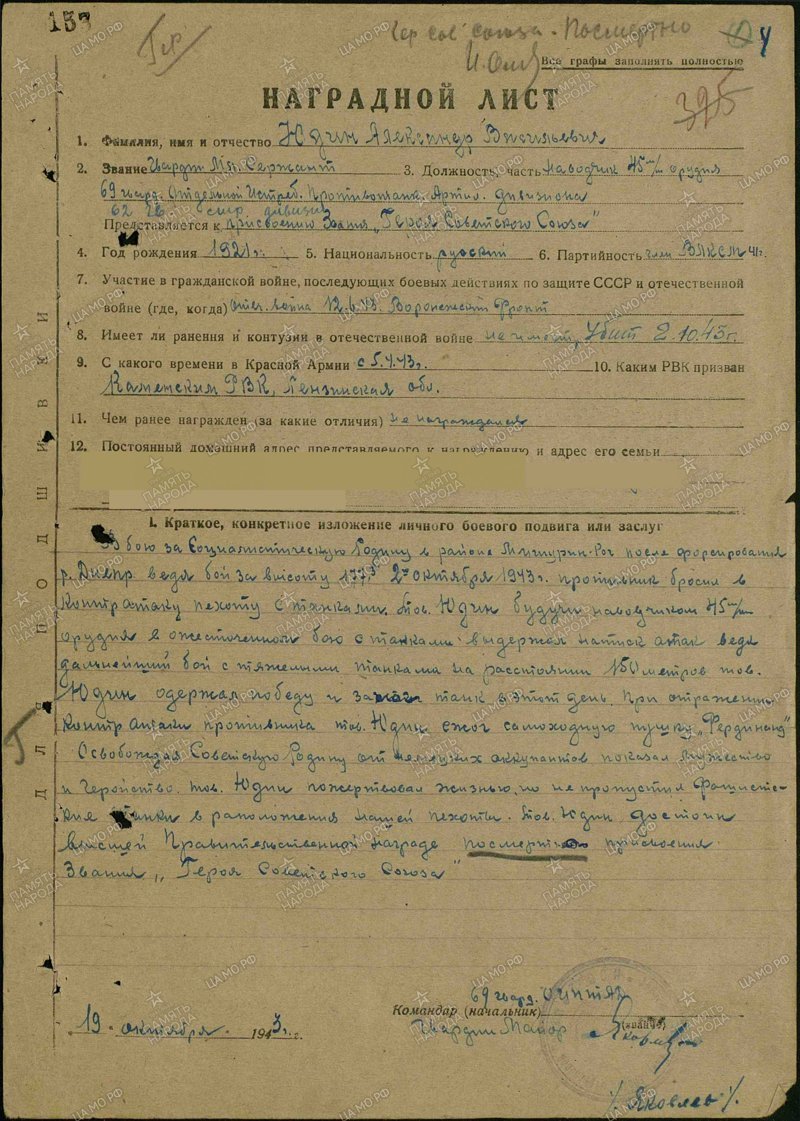 153
Гер Сов Союза - Посмертно
4
Все графы заполнять полностью
НАГРАДНОЙ ЛИСТ
395
1. Фамилия, имя и отчество Юдин Александр Васильевич
2. Звание Гвардии Мл. Сержант 3. Должность, часть наводчик 45 м/м орудия
69 гвард. Отдельной Истреб. Противотанк. Артил. дивизиона
62 гв. стр. дивизии
Представляется к присвоению Звания „Героя Советского Союза"
4. Год рождения 1921 г. 5. Национальность русский 6. Партийность член ВЛКСМ 41 г.
7. Участие в гражданской войне, последующих боевых действиях по защите СССР и отечественной
войне (где, когда) отеч. война 12.6.43. Воронежский Фронт
8. Имеет ли ранения и контузии в отечественной войне не имеет, Убит 2.10.43 г.
9. С какого времени в Красной Армии с 5.4.43 г. 10. Каким РВК призван
Каменским РВК, Пензинская обл.
11. Чем ранее награжден (за какие отличия) не награждался
12. Постоянный домашний адрес представляемого к награждению и адрес его семьи
I. Краткое, конкретное изложение личного боевого подвига или заслуг
В бою за Социалистическую Родину в районе Мишурин-Рог после форсирования
р. Днепр ведя бой за высоту 177, 2го октября 1943 г. противник бросил в
контратаку пехоту с танками. Тов. Юдин будучи наводчиком 45 м/м
орудия в ожесточенном бою с танками выдержал натиск атак ведя
дальнейший бой с тяжелыми танками на расстоянии 150 метров тов.
Юдин одержал победу и танк в этот день. При отражении
контратаки противника тов. Юдин сжог самоходную пушку „Фердинанд"
Освобождая Советскую Родину от немецких оккупантов показал мужество
и Геройство. тов. Юдин пожертвовал жизнью, но не пропустил Фашистс-
кие танки в расположения нашей пехоты. Тов. Юдин достоин
высшей Правительственной награде посмертно присвоения
Звания „Героя Советского Союза"
69 гвард. ОИПТАД
Командир (начальник)
(звание)
Гвардии Майор
19 октября 1943 г.
/Яковлев/.
ДЛЯ ПОДШИВКИ
ПАМЯТЬ НАРОДА
ЦАМО.РФ